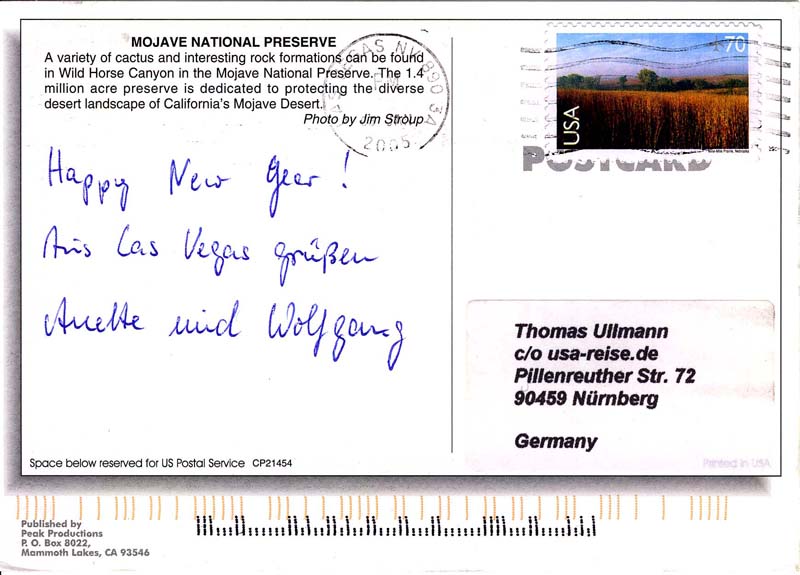 MOJAVE NATIONAL PRESERVE
A variety of cactus and interesting rock formations can be found
in Wild Horse Canyon in the Mojave National Preserve. The 1.4
million acre preserve is dedicated to protecting the diverse
desert landscape of California's Mojave Desert.
Photo by Jim Stroup
VEGAS NV 890 3A
PM
2005
70
USA
Nine-Mile Prairie, Nebraska
POSTCARD
Happy New Year!
Aus Las Vegas grüßen
Anette und Wolfgang
Thomas Ullmann
c/o usa-reise.de
Pillenreuther Str. 72
90459 Nürnberg
Germany
Space below reserved for US Postal Service CP21454
Printed in USA
Published by
Peak Productions
P. O. Box 8022,
Mammoth Lakes, CA 93546